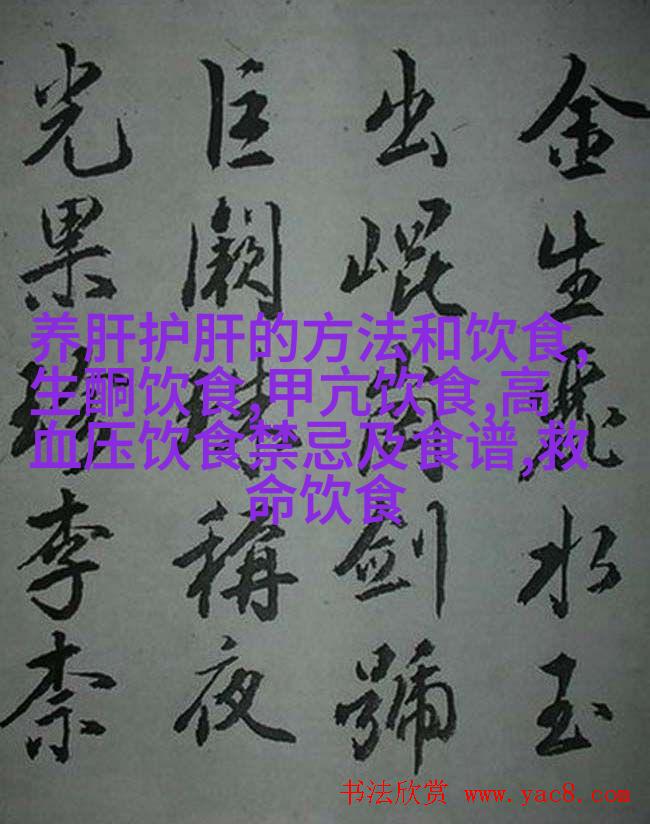 金生麗水玉
出崐岡劍號
巨闕珠稱夜
光果珍李柰
养肝护肝的方法和饮食,
生酮饮食,甲亢饮食,高
血压饮食禁忌及食谱,救
命饮食
书法欣赏 www.yac8.com